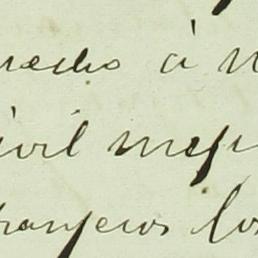 recho á
ivil mej
tranjeros los